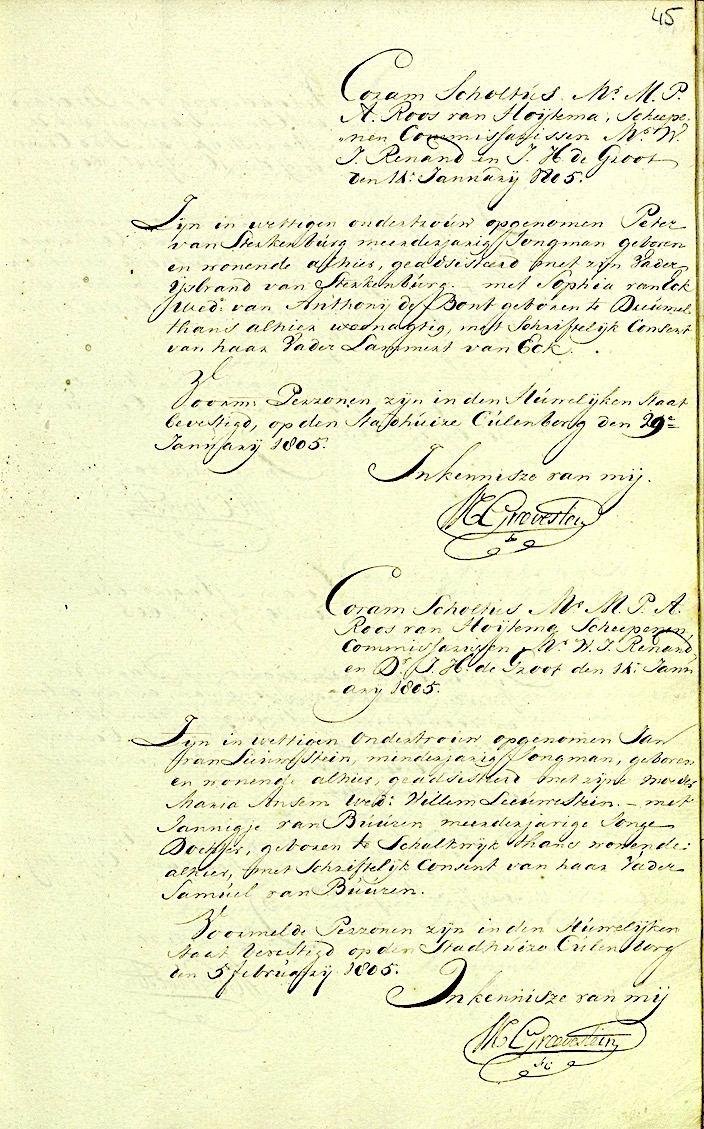 45
Coram Scholtus. Mr. M. P.
A. Roos van Hoijtema, Scheepe-
nen Commissarissen Mr. W.
J. Renand en J. H. de Groot
den 14: Jannuarij 1805.
Zijn in wettigen ondertrouw opgenomen Peter
van Sterkenburg meerderjarig Jongman geboren
en wonende alhier, geadsisteerd met zijn Vader
IJsbrand van Sterkenburg. - met Sophia van Eck
Wed: van Anthonij de Bont geboren te Dreumel
thans alhier woonagtig, met Schriftelijk Consent
van haar Vader Lammert van Eck.
Voorm: Perzonen zijn in den Huwelijken Staat
bevestigd, op den Stadhuize Culenborg den 29e
Januarij 1805.
In kennisze van mij.
Grevestein
Coram Scholtus Mr. M. P. A.
Roos van Hoijtema Scheepenen
Commissarissen Mr. W. J. Renand
en Dr. J. H. de Groot den 14: Jann
arij 1805.
Zijn in wettigen ondertrouw opgenomen Jan
van Leeuwestein, minderjarig Jongman, geboren
en wonende alhier, geadsisteerd met zijne moeder
Maria Ansem Wed: Willem Leeuwestein. - met
Jannigje van Buuren meerderjarige Jonge
Dochter, geboren te Schalkwijk thans wonende:
alhier, met Schriftelijk Consent van haar Vader
Samuel van Buuren.
Voormelde Perzonen zijn in den Huwelijken
Staat bevestigd op den Stadhuize Culenborg
den 5 februarij 1805.
In kennisze van mij
Grevestein